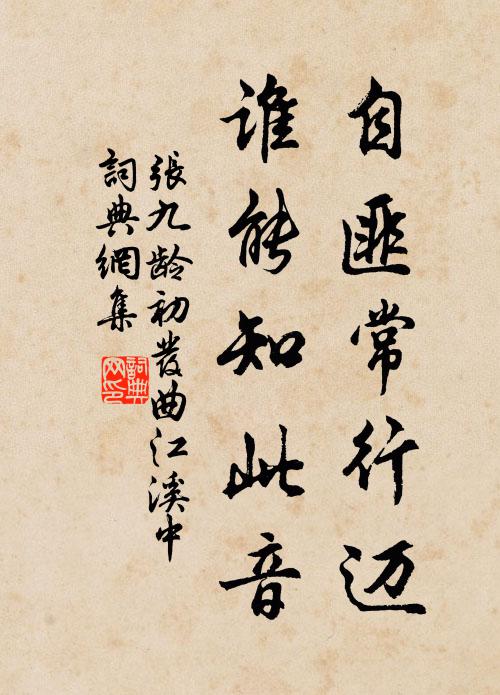 自匪常行迈
谁能知此音
張九龄初發曲江溪中
詞典網集
詞典网印